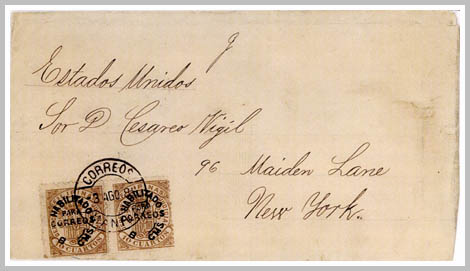 Estados Unidos
Sor D Cesareo Vigil
96 Maiden Lane
New York.
CORREOS
3 AGO
HABILITADO
PARA
CORREOS
HABILITADO
CORREOS
CUARTOS